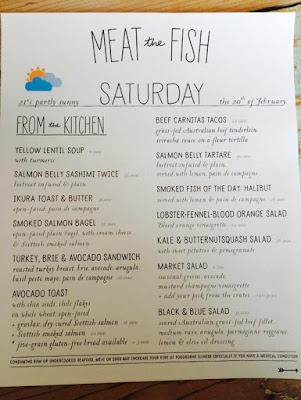 MEAT the FISH
SATURDAY
21°c partly sunny
the 20th of february
FROM the KITCHEN
YELLOW LENTIL SOUP
with turmeric
SALMON BELLY SASHIMI TWICE
beetroot infused & plain
IKURA TOAST & BUTTER
open-faced, pain de campagne
SMOKED SALMON BAGEL
open-faced plain bagel, with cream cheese
& Scottish smoked salmon
TURKEY, BRIE & AVOCADO SANDWICH
roasted turkey breast, brie, avocado, arugula,
basil pesto mayo, pain de campagne
AVOCADO TOAST
with chia seeds, chili flakes
on whole wheat, open-faced
+ gravlax, dry cured Scottish salmon
+ Scottish smoked salmon
* five-grain gluten-free bread available
BEEF CARNITAS TACOS
grass-fed Australian beef tenderloin
sriracha sauce on a flour tortilla
SALMON BELLY TARTARE
beetroot infused & plain,
served with lemon, pain de campagne
SMOKED FISH OF THE DAY: HALIBUT
served with lemon, pain de campagne
LOBSTER-FENNEL-BLOOD ORANGE SALAD
Blood orange vinaigrette
KALE & BUTTERNUTSQUASH SALAD
with sweet potatoes & pomegranate
MARKET SALAD
seasonal greens, avocado,
mustard champagne vinaigrette
+ add your pick from the crates
BLACK & BLUE SALAD
seared Australian grass-fed beef fillet,
medium rare, arugula, parmigiano reggiano,
lemon & olive oil dressing
CONSUMING RAW OR UNDERCOOKED SEAFOOD, MEAT OR EGGS MAY INCREASE YOUR RISK OF FOODBORNE ILLNESS ESPECIALLY IF YOU HAVE A MEDICAL CONDITION